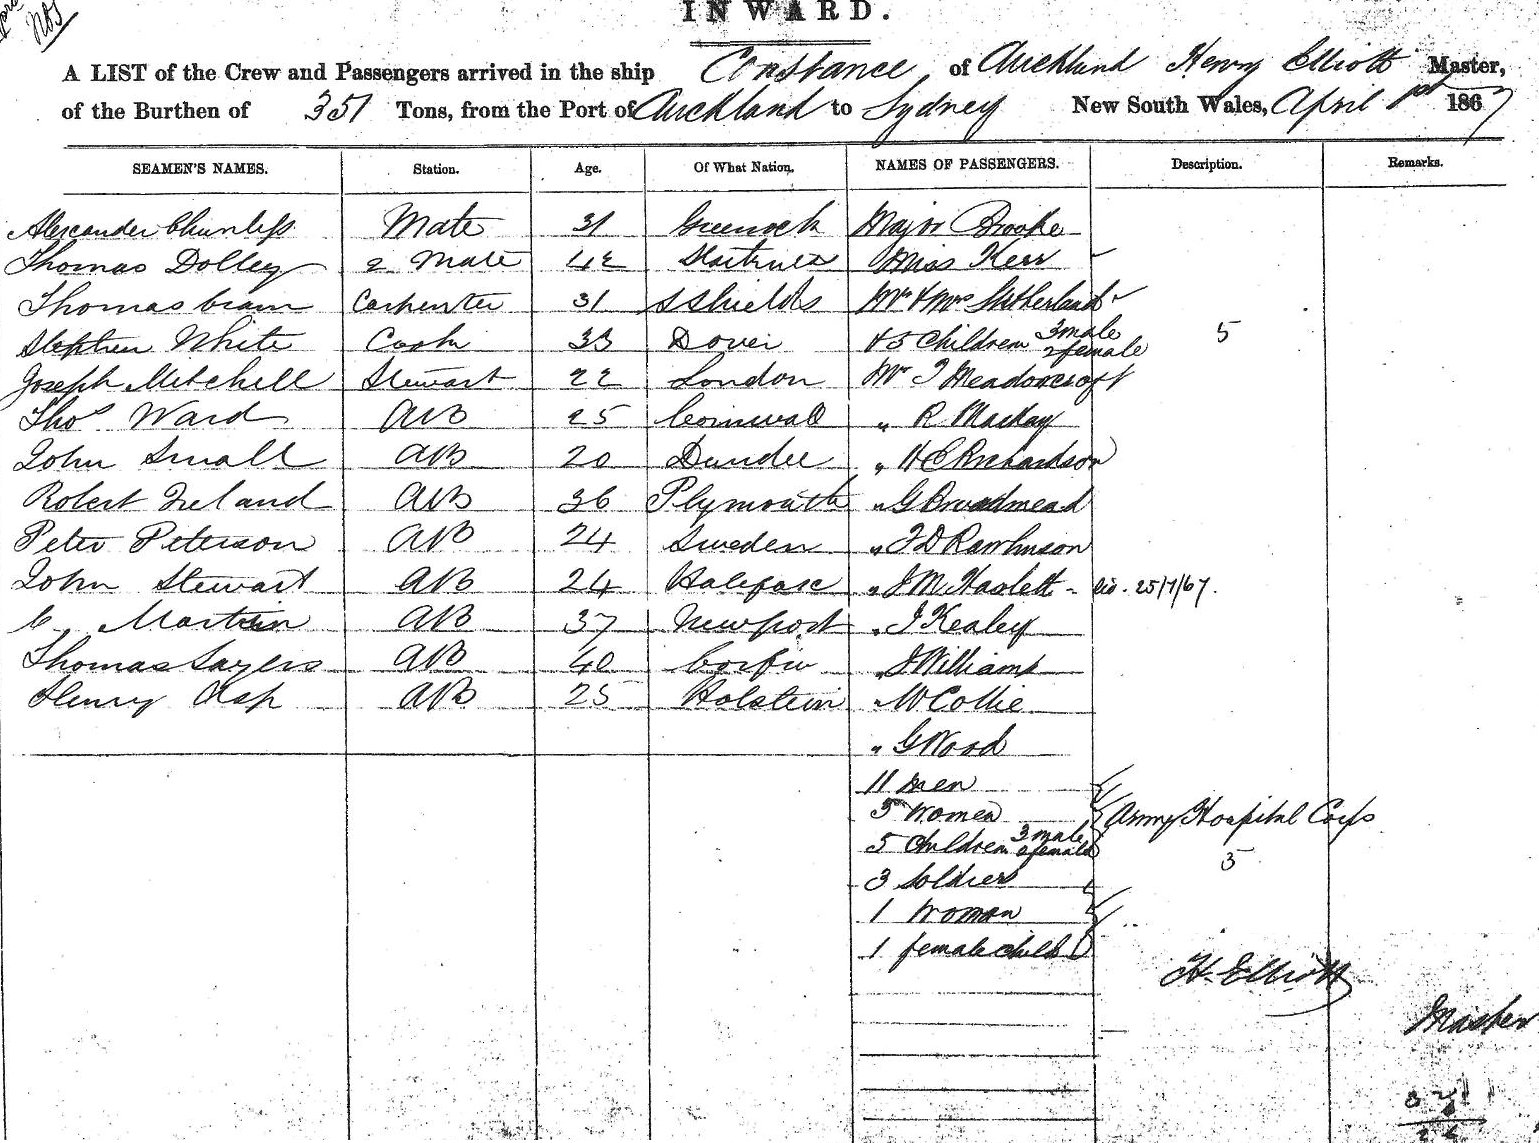 INWARD.
A LIST of the Crew and Passengers arrived in the ship Constance of Auckland Henry Elliott Master,
of the Burthen of 351 Tons, from the Port of Auckland to Sydney New South Wales, April 1st 1867
SEAMEN'S NAMES. Station. Age. Of What Nation. NAMES OF PASSENGERS. Description. Remarks.
Alexander Mate 31 Greenock Major Brooke
Thomas Dolley 2 Mate 42 Miss Kerr
Thomas Cram Carpenter 31 S Shields Mr & Mrs Sutherland
Stephen White Cook 33 Dover & 5 Children 3 male 2 female 5
Joseph Mitchell Stewart 22 London Mr J Meadowcroft
Thos Ward AB 25 Cornwall " R Mackay
John Small AB 20 Dundee " H C Richardson
Robert Ireland AB 36 Plymouth " G Broadmead
Peter Peterson AB 24 Sweden " F D Rawlinson
John Stewart AB 24 Halifax " J M Haslett - 25/7/67.
C. Martin AB 37 Newport " J Kealey
Thomas Sayers AB 40 Corfu " J Williams
Henry Asp AB 25 Holstein " W Collie
" G Wood
11 men
5 Women Army Hospital Corps
5 Children 3 male 2 female 5
3 Soldiers
1 Woman
1 female child
H. Elliott
Master